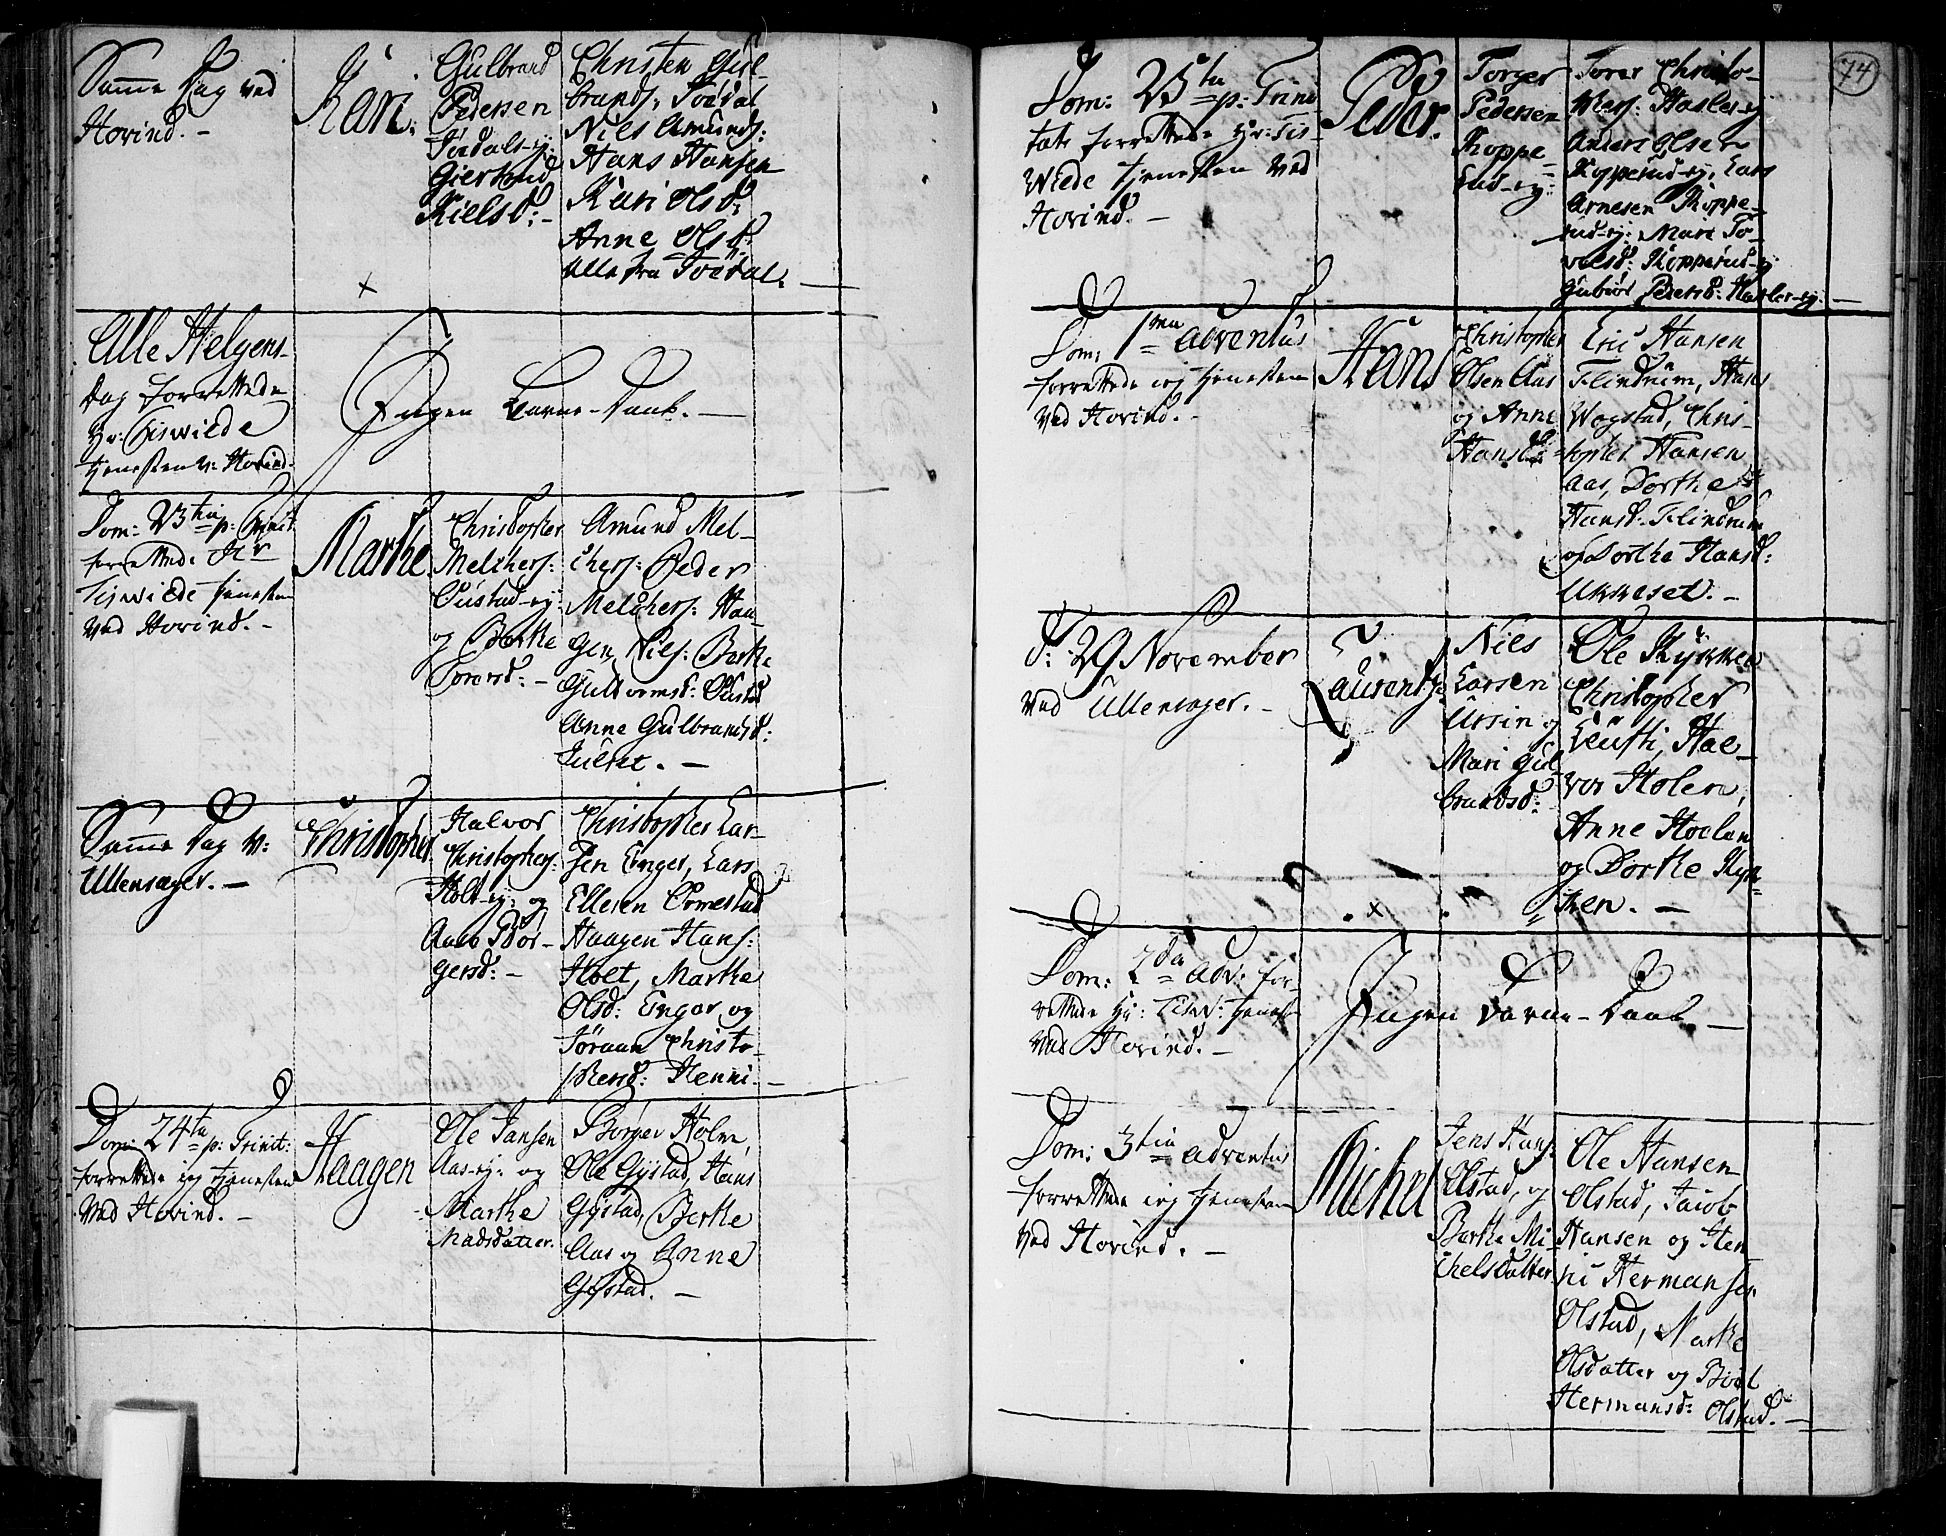 Samme Dag ved
Hovind. -
Kari.
Gulbrand
Pedersen
Joedals-ej:
Giertrud
Nielsd: -
Christen Gul-
brands: Joedal
Nils Amunds:
Hans Hansen
Kari Olsd:
Anne Olsd:
alle fra Joedal. -
Alle Helgens-
Dag forrettede
Hr: Tiswilde
tjenesten v: Hovind.
Ingen Barne-Daab. -
Dom: 23tia p: Trinit
forrettede Hr
Tiswilde tjenesten
ved Hovind. -
Marthe
Christopher
Melchers:
Oustad-ej:
og Berthe
Torersd: -
Amund Mel-
chers: Peder
Melchers: Hau-
gen, Nils: Berthe
Guldormsd: Oustad
Anne Gulbrandsd:
Samme Dag v:
Ullensager. -
Christopher
Halvor
Christophers:
Holt-ej: og
Anne Bør-
gersd: -
Christopher Lar-
sen Enger, Lars
Ellesen Ormestad
Haagen Hans:
Holt, Marthe
Olsd: Enger og
Jøraan Christo-
phersd: Henni. -
Dom: 24ta p: Trinit:
forrettede ieg tjenesten
ved Hovind. -
Haagen
Ole Jansen
Aas-ej: og
Marthe
Madsdatter.
Børger Holm,
Ole Gystad, Hans
Gystad, Berthe
Aas og Anne
Gystad. -
74
Dom: 25ta p: Trini
tatis forrettede Hr: Tis-
wilde tjenesten ved
Hovind. -
Peder.
Torger
Pedersen
Koppe-
rud-ej:
Torer Christo-
phers: Hasler-ej
Anders Olsen
Kopperud-ej, Lars
Arnesen Koppe-
rud-ej: Mari To-
Kopperud-ej
Gubiør Pedersd: Hasler-ej: -
Dom: 1ma Adventus
forrettede ieg tjenesten
ved Hovind. -
Hans
Christopher
Olsen Aas
og Anne
Hansd:
Eric Hansen
Flindrum, Hans
Wogstad, Chris-
topher Hansen
Aas, Dorthe
Hansd: Flindrum
og Dorthe Hansd:
Ukkeset. -
D: 29 November
ved Ullensager. -
Laurentz
Niels
Larsen
Ursin og
Mari Gul-
brandsd:
Ole Kykken
Christopher
Leufti, Hal-
vor Holen,
Anne Hoelen
og Dorthe Kyk-
ken. -
Dom: 2da Adv: for-
rettede Hr: Tisw: tjenest
ved Hovind. -
Ingen Barne-Daab -
Dom: 3tia Adventus
forrettede ieg tjenesten
ved Hovind. -
Michel
Jens Hans:
Olstad, og
Berthe Mi-
chelsdatter
Ole Hansen
Olstad, Jacob
Hansen og Hen-
ni Hermansen
Olstad, Marthe
Olsdatter og Boel
Hermansd: Olstad. -